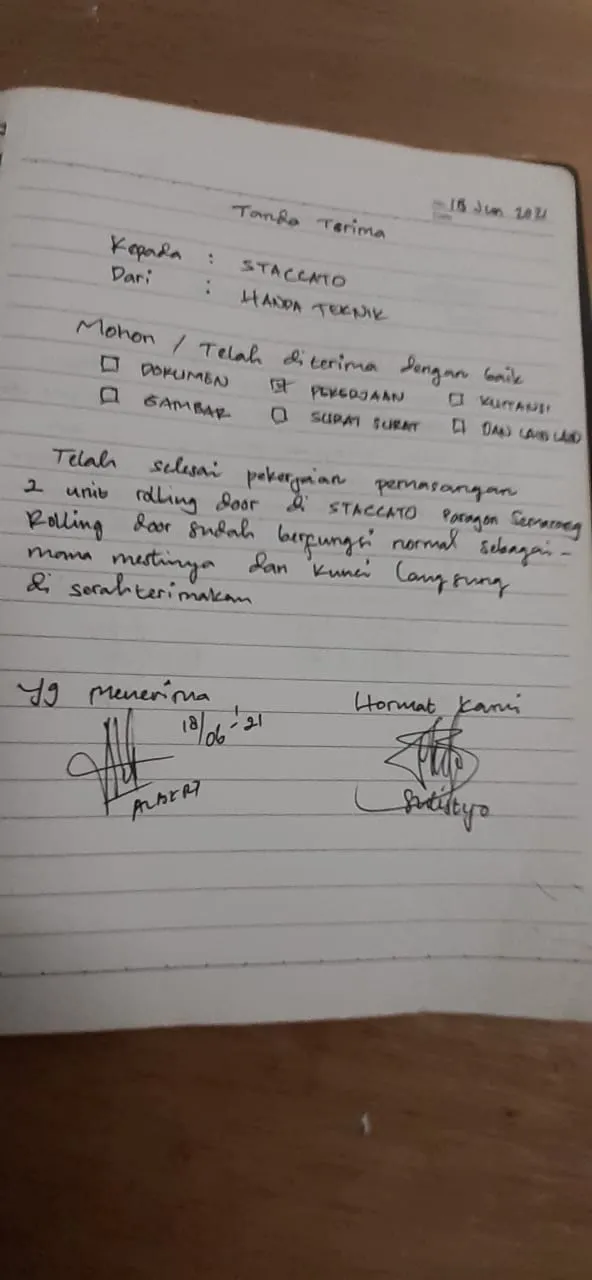 18 Jun 2021
Tanda Terima
Kepada : STACCATO
Dari : HANDA TEKNIK
Mohon / Telah diterima dengan baik
DOKUMEN PEKERJAAN KUITANSI
GAMBAR SURAT SURAT DAN LAIN LAIN
Telah selesai pekerjaan pemasangan
2 unit rolling door di STACCATO Paragon Semarang
Rolling door sudah berfungsi normal sebagai-
mana mestinya dan kunci langsung
di serahterimakan
Yg menerima Hormat Kami
18/06-'21
ALBERT Sutistyo